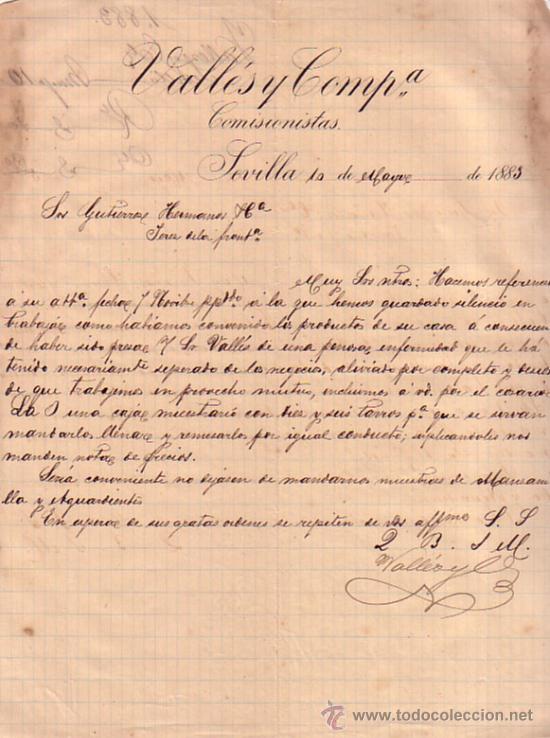 Vallés y Comp.ª
Comisionistas.
Sevilla 10 de Mayo de 1883
Srs Gutierrez Hermanos y Cª
Jerez de la frontª
Muy Srs ntros: Hacemos referencia
á su attª fecha 7 Novbe ppdo á la que hemos guardado silencio en
trabajar como habiamos convenido los productos de su casa á consecuen
de haber sido presa Sr Vallés de una penosa enfermedad que le há
tenido necesariamte separado de los negocios, aliviado por completo y
de que trabajemos en provecho mutuo, incluimos á vd. por el cosario
La una caja muestrario con diez y seis tarros pª que se sirvan
mandarlos llenar y remesarlos por igual conducto; suplicandoles nos
manden nota de precios.
Será conveniente no dejasen de mandarnos muestras de Manzani
lla y Aguardientes
En espera de sus gratas ordenes se repiten de Vds affmo S. S
Q B. S M.
Valles y Cª
1.883
10
TC
todocoleccion
www.todocoleccion.net